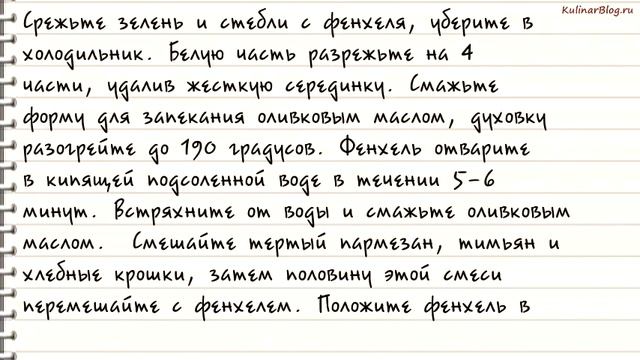 KulinarBlog.ru
Срежьте зелень и стебли с фенхеля, уберите в
холодильник. Белую часть разрежьте на 4
части, удалив жесткую серединку. Смажьте
форму для запекания оливковым маслом, духовку
разогрейте до 190 градусов. Фенхель отварите
в кипящей подсоленной воде в течении 5-6
минут. Встряхните от воды и смажьте оливковым
маслом. Смешайте тертый пармезан, тимьян и
хлебные крошки, затем половину этой смеси
перемешайте с фенхелем. Положите фенхель в